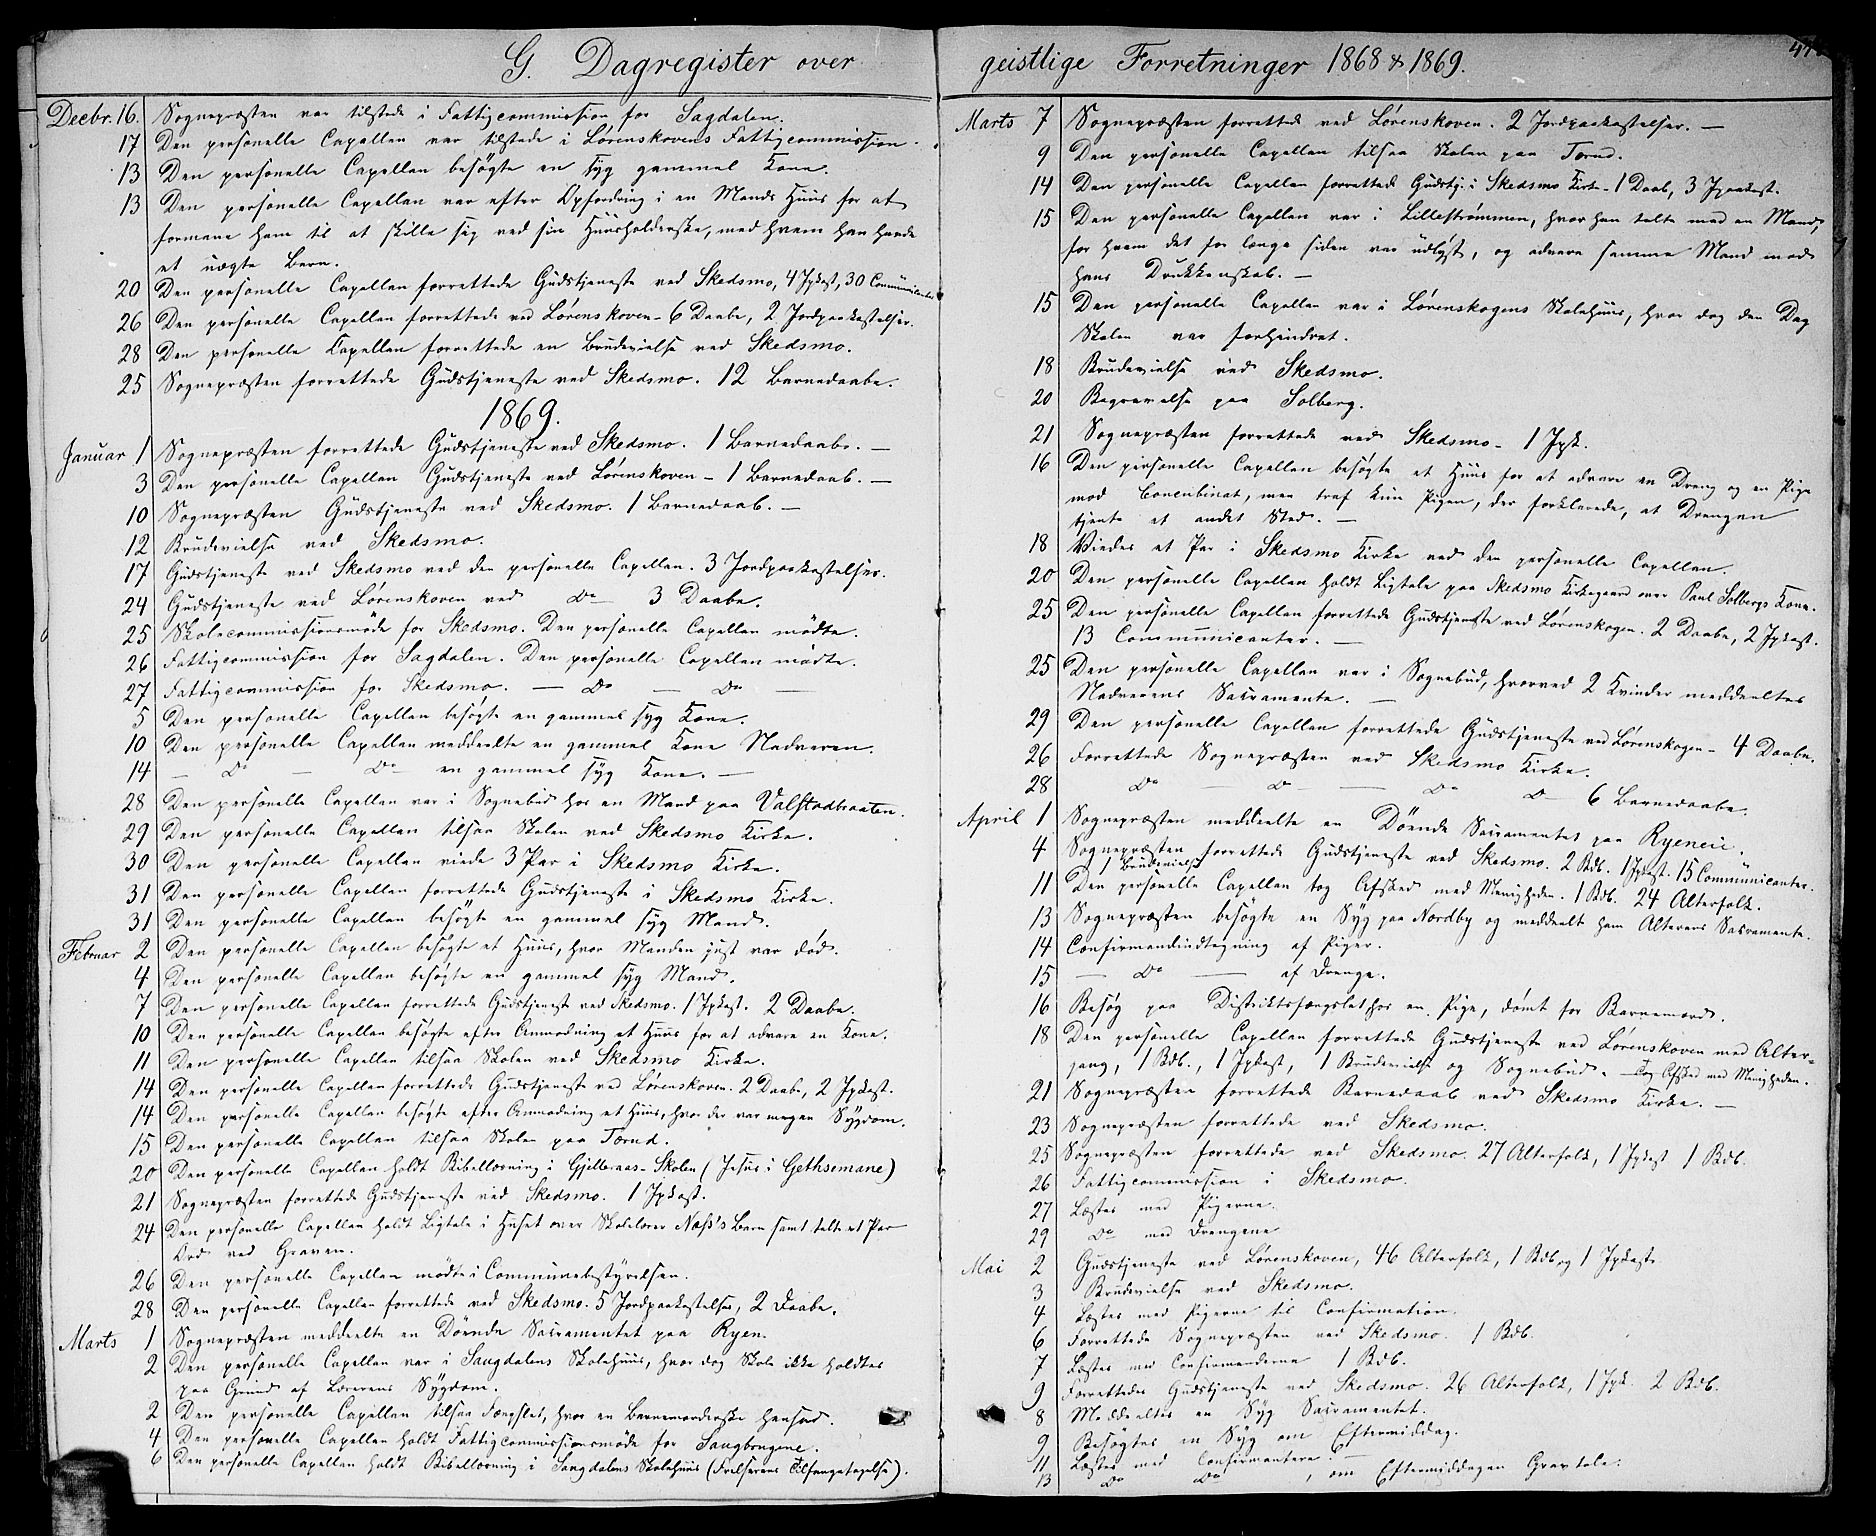 G. Dagregister over
Decbr. 16. Sognepræsten var tilstede i Fattigcommission for Sagdalen.
17 Den personelle Capellan var tilstede i Lørenskovens Fattigcommission.
13 Den personelle Capellan besøgte en syg gammel Kone.
13 Den personelle Capellan var efter Opfordring i en Mands Huus for at
formane ham til at skille sig ved sin Huusholderske, med hvem han havde
et uægte Barn.
20 Den personelle Capellan forrettede Gudstjeneste ved Skedsmo, 4 Jpkast, 30 Communicanter
26 Den personelle Capellan forrettede ved Lørenskoven - 6 Daabe, 2 Jordpaakastelser.
28 Den personelle Capellan forrettede en Brudevielse ved Skedsmo.
25 Sognepræsten forrettede Gudstjeneste ved Skedsmo. 12 Barnedaabe.
1869.
Januar 1 Sognepræsten forrettede Gudstjeneste ved Skedsmo. 1 Barnedaab. —
3 Den personelle Capellan Gudstjeneste ved Lørenskoven - 1 Barnedaab. —
10 Sognepræsten Gudstjeneste ved Skedsmo. 1 Barnedaab. —
12 Brudevielse ved Skedsmo.
17 Gudstjeneste ved Skedsmo ved den personelle Capellan. 3 Jordpaakastelser.
24 Gudstjeneste ved Lørenskoven ved Do 3 Daabe.
25 Skolecommissionsmøde for Skedsmo. Den personelle Capellan mødte.
26 Fattigcommission for Sagdalen. Den personelle Capellan mødte.
27 Fattigcommission for Skedsmo. — Do — Do —
5 Den personelle Capellan besøgte en gammel syg Kone.
10 Den personelle Capellan meddeelte en gammel Kone Nadveren.
14 — Do — Do en gammel syg Kone. —
28 Den personelle Capellan var i Sognebud hos en Mand paa Valstadbraaten.
29 Den personelle Capellan tilsaa Skolen ved Skedsmo Kirke.
30 Den personelle Capellan viede 3 Par i Skedsmo Kirke.
31 Den personelle Capellan forrettede Gudstjeneste i Skedsmo Kirke.
31 Den personelle Capellan besøgte en gammel syg Mand.
Februar 2 Den personelle Capellan besøgte et Huus, hvor Manden just var død.
4 Den personelle Capellan besøgte en gammel syg Mand.
7 Den personelle Capellan forrettede Gudstjeneste ved Skedsmo. 1 Jpkast. 2 Daabe.
10 Den personelle Capellan besøgte efter Anmodning et Huus for at advare en Kone.
11 Den personelle Capellan tilsaa Skolen ved Skedsmo Kirke.
14 Den personelle Capellan forrettede Gudstjeneste ved Lørenskoven. 2 Daabe, 2 Jpkast.
14 Den personelle Capellan besøgte efter Anmodning et Huus, hvor der var megen Sygdom.
15 Den personelle Capellan tilsaa Skolen paa Torud.
20 Den personelle Capellan holdt Bibellæsning i Gjelleraas-Skolen (Jesus i Gethsemane)
21 Sognepræsten forrettede Gudstjeneste ved Skedsmo. 1 Jpkast.
24 Den personelle Capellan holdt Ligtale i Huset over Skolelærer Næss's Barn samt talte et Par
Ord ved Graven.
26 Den personelle Capellan mødte i Communebestyrelsen.
28 Den personelle Capellan forrettede ved Skedsmo. 5 Jordpaakastelser, 2 Daabe.
Marts 1 Sognepræsten meddeelte en Døende Sacramentet paa Ryen.
2 Den personelle Capellan var i Saugdalens Skolehuus, hvor dog Skole ikke holdtes
paa Grund af Lærerens Sygdom.
2 Den personelle Capellan tilsaa Fængslet, hvor en Barnemorderske hensad.
4 Den personelle Capellan holdt Fattigcommissionsmøde for Saugbrugene.
6 Den personelle Capellan holdt Bibellæsning i Saugdalens Skolehuus (Frelserens Tilfangetagelse).
geistlige Forretninger 1868 & 1869.
Marts 7 Sognepræsten forrettede ved Lørenskoven. 2 Jordpaakastelser. —
9 Den personelle Capellan tilsaa Skolen paa Torud.
14 Den personelle Capellan forrettede Gudstj. i Skedsmo Kirke - 1 Daab, 3 Jpaakast.
15 Den personelle Capellan var i Lillestrømmen, hvor han talte med en Mand,
for hvem det for længe siden var udlyst, og advare samme Mand mod
hans Drukkenskab. —
15 Den personelle Capellan var i Lørenskogens Skolehuus, hvor dog den Dag
Skolen var forhindret.
18 Brudevielse ved Skedsmo.
20 Begravelse paa Solberg.
21 Sognepræsten forrettede ved Skedsmo - 1 Jpk.
16 Den personelle Capellan besøgte et Huus for at advare en Dreng og en Pige
mod Concubinat, men traf kun Pigen, der forklarede, at Drengen
tjente et andet Sted. —
18 Viedes et Par i Skedsmo Kirke ved den personelle Capellan.
20 Den personelle Capellan holdt Ligtale paa Skedsmo Kirkegaard over Paul Solbergs Kone.
25 Den personelle Capellan forrettede Gudstjeneste ved Lørenskogen. 2 Daabe, 2 Jpkast.
13 Communicanter. —
25 Den personelle Capellan var i Sognebud, hvorved 2 Kvinder meddeeltes
Nadverens Sacramente. —
29 Den personelle Capellan forrettede Gudstjeneste ved Lørenskogen - 4 Daabe.
26 Forrettede Sognepræsten ved Skedsmo Kirke.
28 Do — Do — Do Do 6 Barnedaabe.
April 1 Sognepræsten meddeelte en Døende Sacramentet paa Ryeneie.
4 Sognepræsten forrettede Gudstjeneste ved Skedsmo. 2 Bdb. 1 Jpkast. 15 Communicanter.
1 Brudevielse
11 Den personelle Capellan tog Afsked med Menigheden. 1 Bdb. 24 Alterfolk.
13 Sognepræsten besøgte en Syg paa Nordby og meddeelt ham Alterens Sacramente.
14 Confirmandindtegning af Piger.
15 — Do — af Drenge.
16 Besøg paa Distriktsfængslet hos en Pige, dømt for Barnemord.
18 Den personelle Capellan forrettede Gudstjeneste ved Lørenskoven med Alter-
gang, 1 Bdb., 1 Jpkast, 1 Brudevielse og Sognebud. — Tog Afsked med Menigheden.
21 Sognepræsten forrettede Barnedaab ved Skedsmo Kirke. —
23 Sognepræsten forrettede ved Skedsmo.
25 Sognepræsten forrettede ved Skedsmo. 27 Alterfolk, 1 Jpkast 1 Bdb.
26 Fattigcommission i Skedsmo.
27 Læstes med Pigerne.
29 Do med Drengene
Mai 2 Gudstjeneste ved Lørenskoven, 46 Alterfolk, 1 Bdb. og 1 Jpkast
3 Brudevielse ved Skedsmo.
4 Læstes med Pigerne til Confirmation.
6 Forrettede Sognepræsten ved Skedsmo. 1 Bdb.
7 Læstes med Confirmanderne 1 Bdb.
9 Forrettedes Gudstjeneste ved Skedsmo. 26 Alterfolk, 1 Jpk. 2 Bdb.
8 Meddeeltes en Syg Sacramentet.
9 Besøgtes en Syg om Eftermiddag.
11 Læstes med Confirmantere. —
13 Do Do , om Eftermiddagen Gravtale.